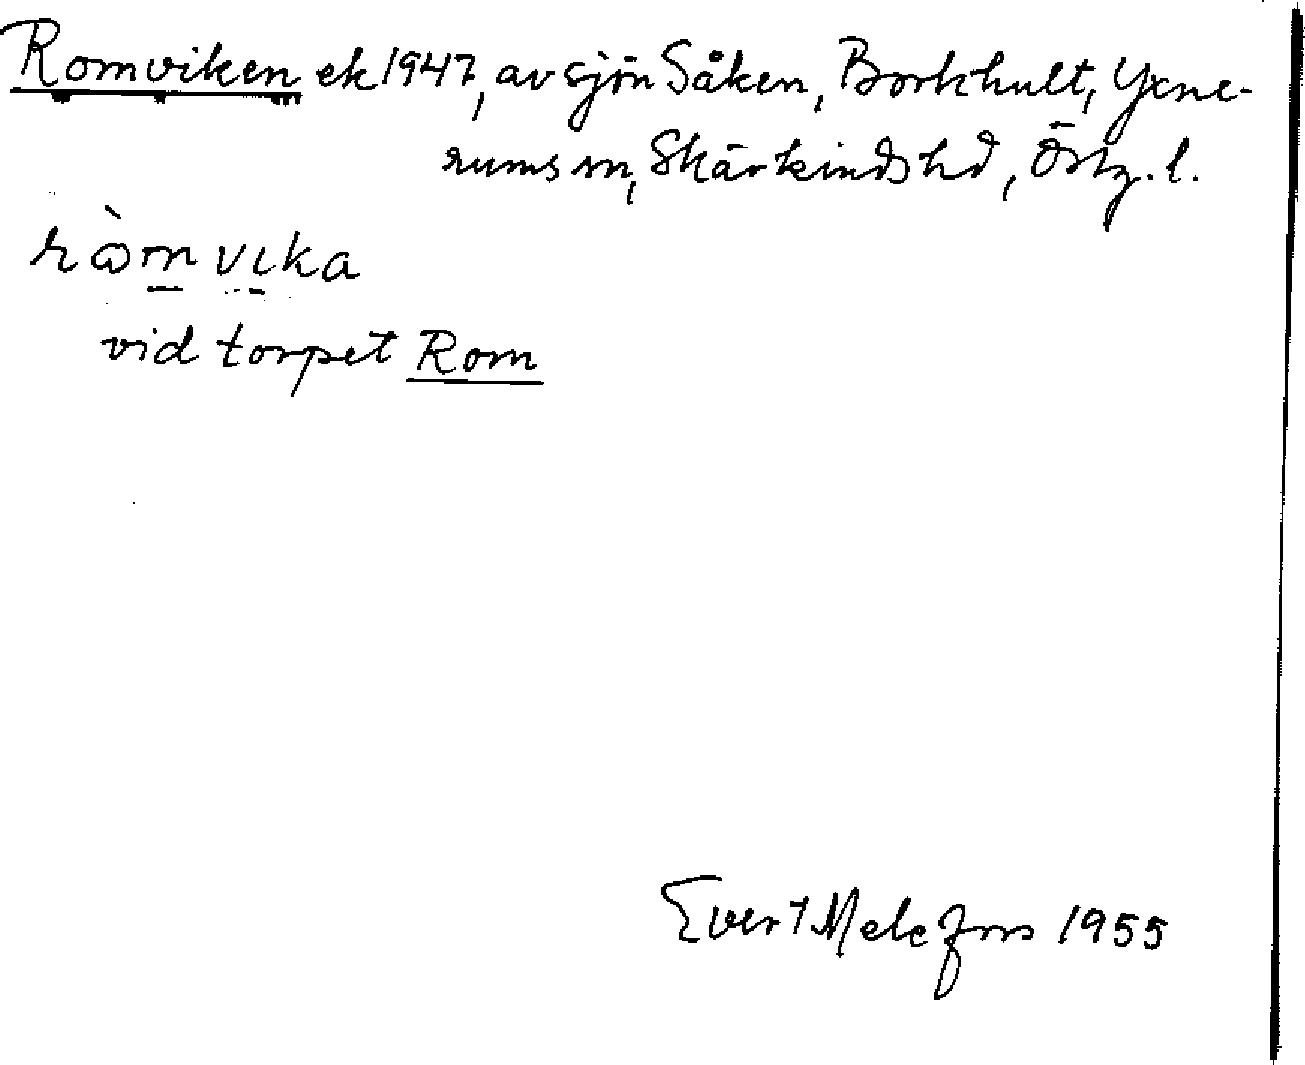 Romviken ek 1947, av sjön Såken, Borkhult, Yxne-
rums sn, Skärkinds hd, Östg. l.
ròm vika
vid torpet Rom
Evert Melefors 1955